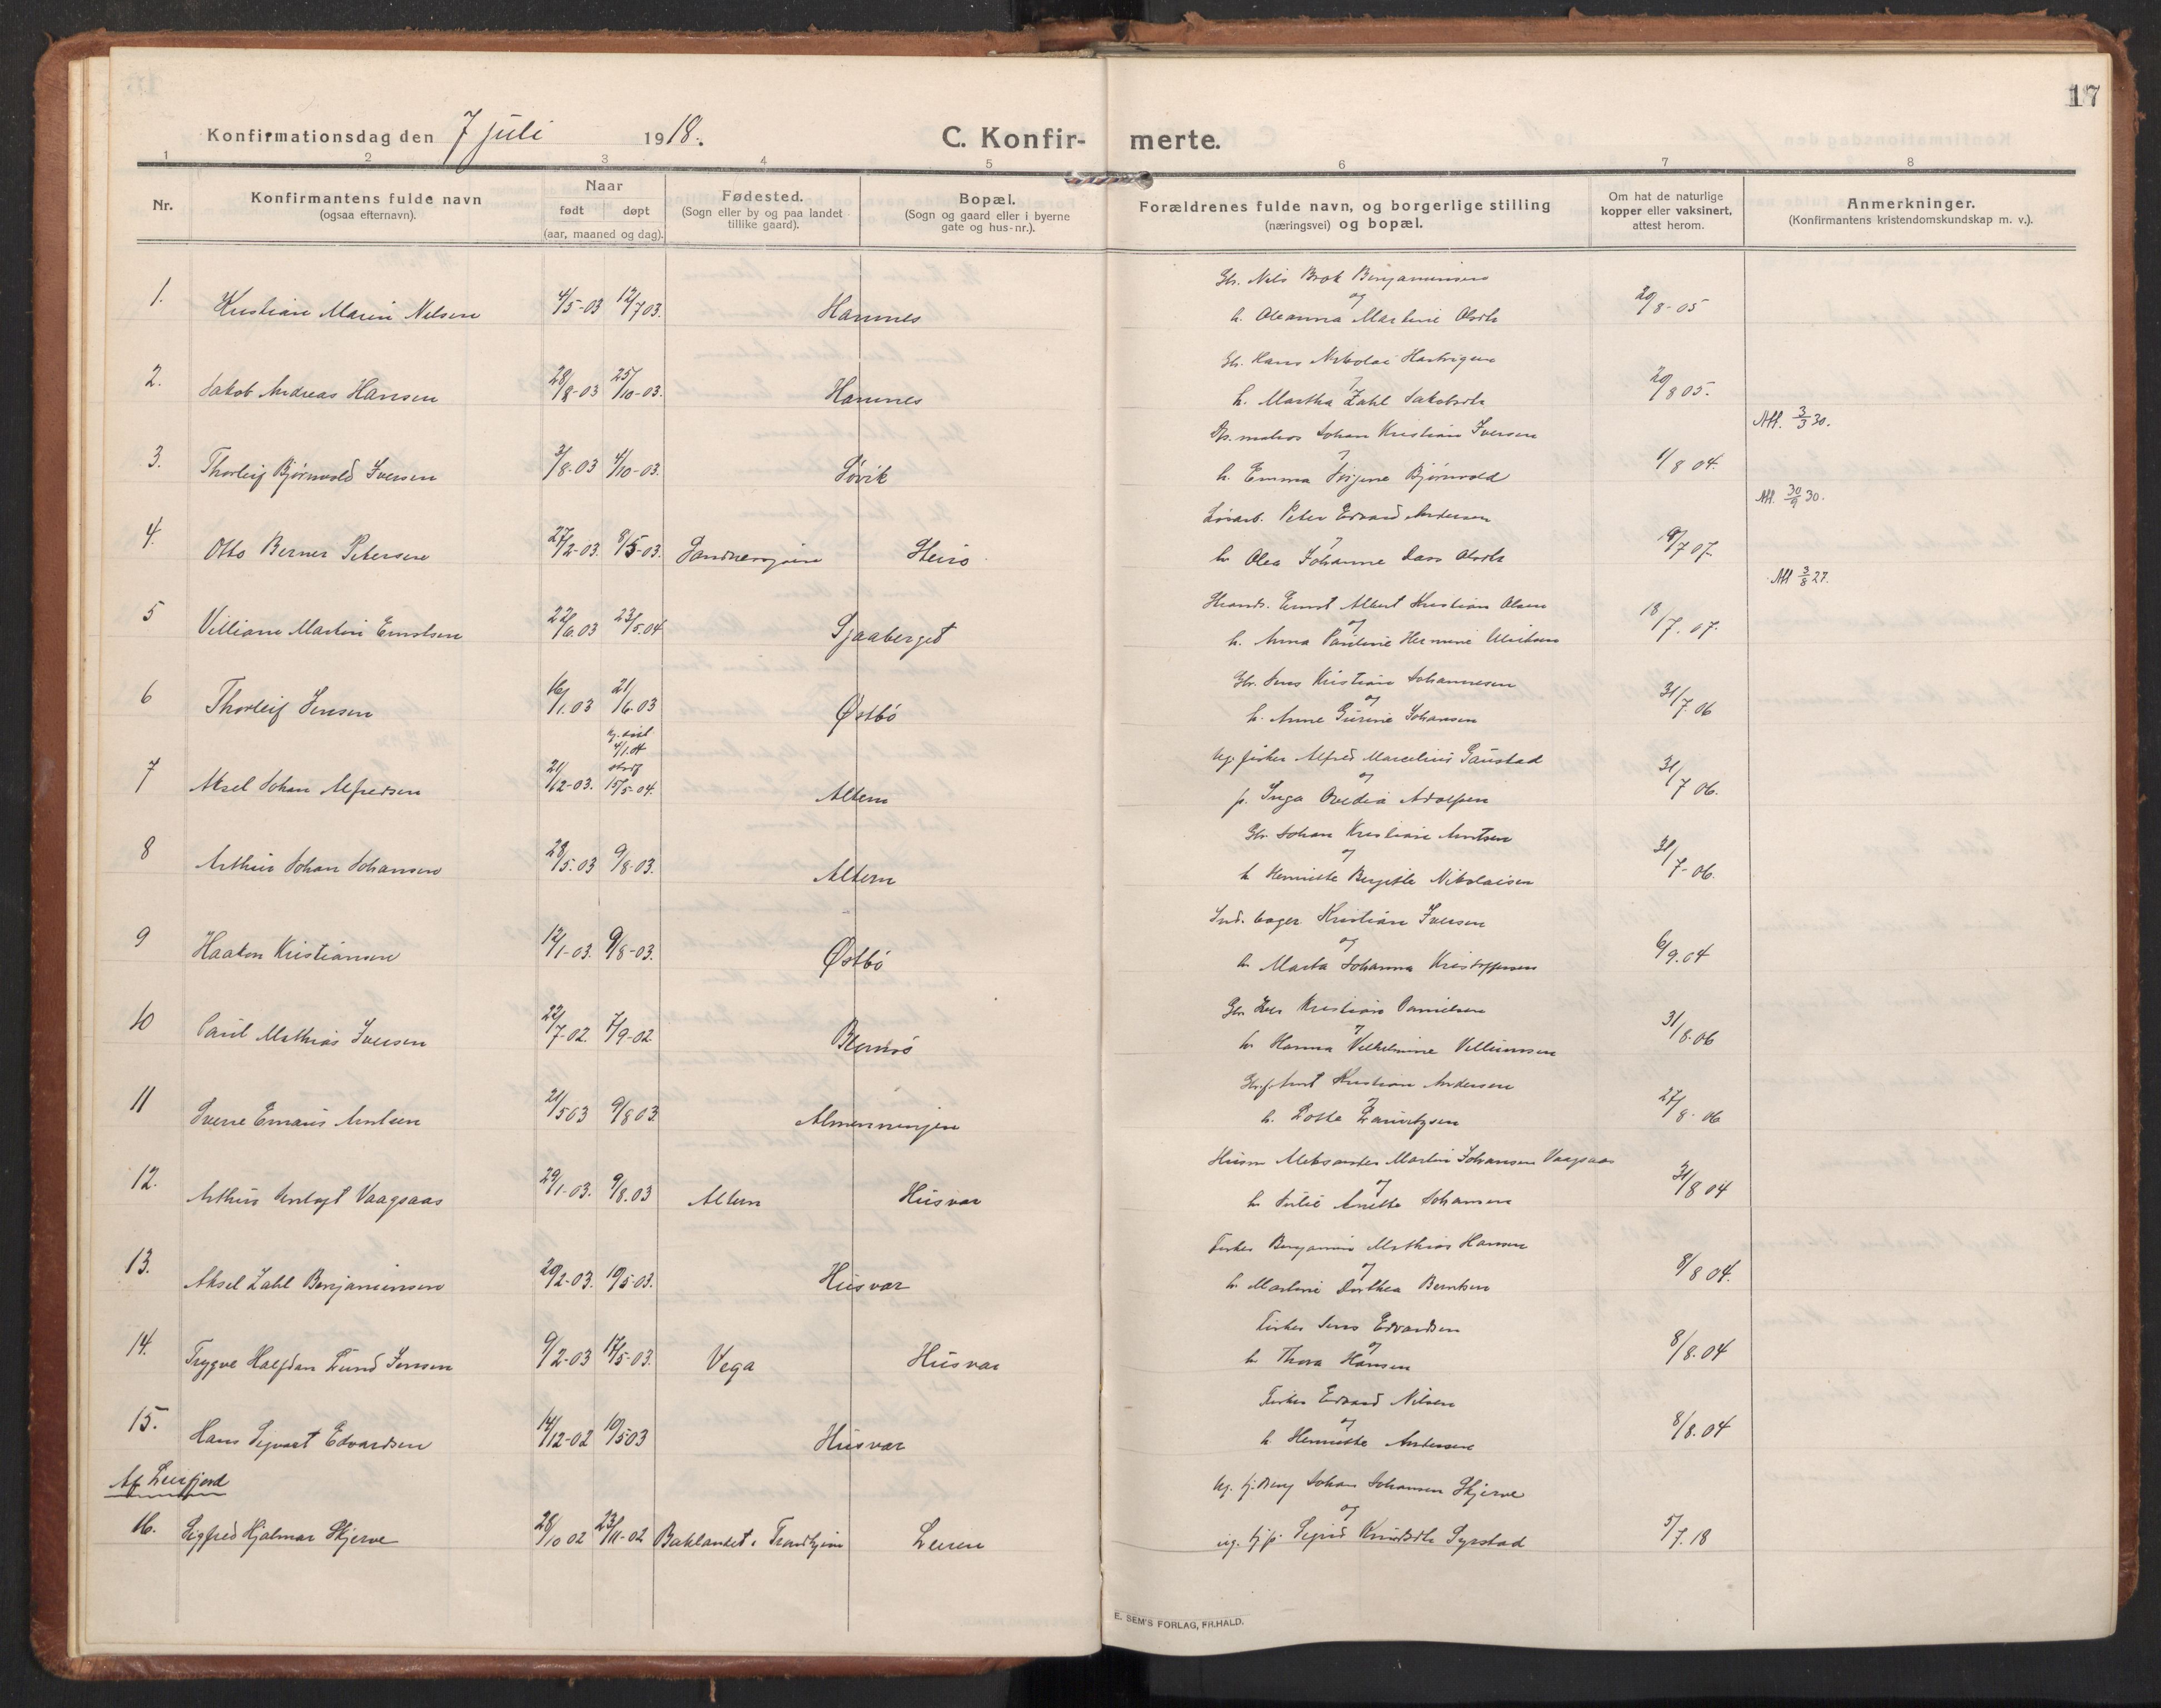 17
Konfirmationsdag den 7 juli 1918.
C. Konfir- merte.
1 2 3 4 5 6 7 8
Nr.
Konfirmantens fulde navn
(ogsaa efternavn).
Naar
født døpt
(aar, maaned og dag).
Fødested.
(Sogn eller by og paa landet
tillike gaard).
Bopæl.
(Sogn og gaard eller i byerne
gate og hus-nr.).
Forældrenes fulde navn, og borgerlige stilling
(næringsvei) og bopæl.
Om hat de naturlige
kopper eller vaksinert,
attest herom.
Anmerkninger.
(Konfirmantens kristendomskundskap m. v.).
Gbr. Nils Brok Benjaminsen
og
1. Kristian Marin Nilsen 4/5-03 12/7 03. Hamnes h. Oleanna Martine Olsdtr 20/8-05
Gbr. Hans Nikolai Hartvigsen
2. Jakob Andreas Hansen 28/8-03 25/10-03. Hamnes h. Martha Zahl Jakobsdtr 20/8 05.
Att. 3/3 30.
matros Johan Kristian Iversen
3. Thorleif Bjørnvold Iversen 3/8-03 4/10-03. Søvik h. Emma Bjørnvold 1/8 04.
Att. 30/9 30.
Løsarb. Peter Edvard Andersen
4. Otto Berner Petersen 27/2-03. 8/5-03. h Olea Johanne Dass Olsdtr 18/7 07.
Att 3/8 27.
Ernst Albert Kristian Olsen
og
5 Villiam Martin Erntsen 22/6.03 23/5.04 Sjaaberget h. Anna Pauline Hermine 18/7. 07.
Gbr. Jens Kristian Johannesen
og
6 Thorleif Jensen 16/1.03 21/6.03 Østbö h. Anne Gurine Johansen 31/7.06
4/1.04
ug. fisker Alfred Marcelius Gaustad
og
7 Aksel Johan Alfredsen 21/12-03. 15/5-04. Altern p. Inga Ovedia Adolfsen 31/7 06.
Gbr Johan Kristian Arntsen
og
8 Arthur Johan Johansen 28/5.03 9/8.03. Altern h Henriette Bergitte Nikolaisen 31/7-06.
Ind. bager Kristian Iversen
og
9 Haakon Kristiansen 12/1-03. 9/8-03. Østbö h. Marta Johanna Kristoffersen 6/9.04
Gbr Iver Kristian Danielsen
10 Paul Mathias Iversen 22/7-02. 7/9-02 h Hanna Vilhelmine Villumsen 31/8.06
Arnt Kristian Andersen
11 Sverre Emaus Arntsen 21/5 03 9/8 03. Almenningen h. Lotte Lauritzsen 27/8-06
Husm Aleksander Martin Johansen Vaagsaas
og
12. Arthur Vaagsaas 29/1-03. 9/8.03 Altern Husvær h Julie Anette Johansen 31/8 04
Fisker Benjamin Mathias Hansen
og
13. Aksel Zahl Benjaminsen 20/2-03. 10/5-03. Husvær h. Martine Dorthea Berntsen 8/8 04.
Fisker Jens Edvardsen
og
14. Trygve Halfdan Lund Jensen 9/2-03 17/5-03. Vega Husvær h Thora Hansen 8/8.04
Fisker Edvard Nilsen
og
15. Hans Sigvart Edvardsen 14/12-02 10/5 03 Husvær h Henriette Andersen 8/8.04
Af Leirfjord
ug. Johan Johansen Skjerve
og
16. Sigfred Hjalmar Skjerve 28/10 02 23/11-02 Baklandet i Trondhjem Leiren ug. tj.p. Sigrid Knudsdtr Syrstad 5/7.18
E. SEM'S FORLAG, FR.HALD.